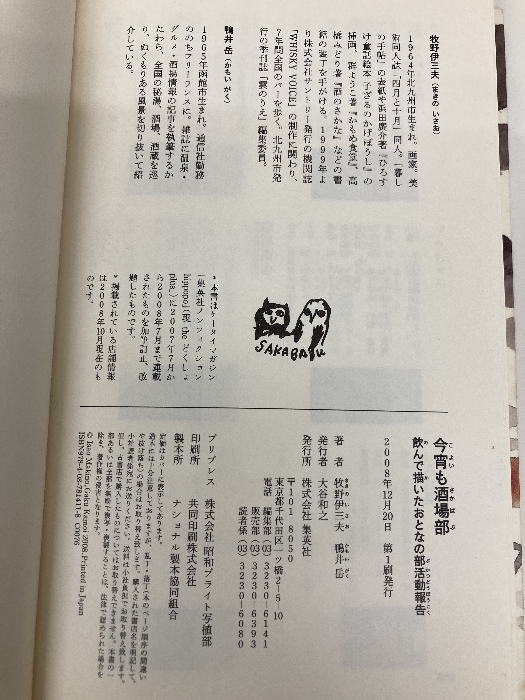 牧野伊三夫（まきの いさお）
1964年北九州市生まれ。画家。美
術同人誌「四月と十月」同人。「暮し
の手帖」の表紙や浜田廣介著『ひろす
け童話絵本 子ざるのかげぼうし』の
挿画、群ようこ著『かもめ食堂』、高
橋みどり著『酒のさかな』などの書
籍の装丁を手がける。1999年よ
り株式会社サントリー発行の機関誌
「WHISKY VOICE」の制作に関わり、
7年間全国のバーを歩く。北九州市発
行の季刊誌「雲のうえ」編集委員。
鴨井 岳（かもい がく）
1965年函館市生まれ。通信社勤務
ののちフリーランスに。雑誌に温泉・
グルメ・酒場情報の記事を執筆するか
たわら、全国の秘湯、酒場、酒蔵を巡
り、ぬくもりある風景を切り抜いて紹
介している。
SAKABABU
＊本書はケータイマガジン
「集英社ノンフィクション
hippopo」（現 the どくしょ
plus）に2007年7月か
ら2008年7月まで連載
されたものを加筆訂正、改
題したものです。
＊掲載されている店舗情報
は2008年10月現在のも
のです。
今宵も酒場部
飲んで描いたおとなの部活動報告
2008年12月20日 第1刷発行
著者 牧野伊三夫 鴨井岳
発行者 大谷和之
発行所 株式会社 集英社
〒101-8050
東京都千代田区一ツ橋2-5-10
電話 編集部（03）3230-6141
販売部（03）3230-6393
読者係（03）3230-6080
プリプレス 株式会社 昭和ブライト写植部
印刷所 共同印刷株式会社
製本所 ナショナル製本協同組合
定価はカバーに表示してあります。
造本には十分注意しておりますが、乱丁・落丁（本のページ順序の間違い
や抜け落ち）の場合はお取り替え致します。購入された書店名を明記して、
小社読者係宛にお送りください。送料は小社負担でお取り替え致します。
但し、古書店で購入したものについてはお取り替えできません。本書の一
部あるいは全部を無断で複写・複製することは、法律で認められた場合を
除き、著作権の侵害となります。
© Isao Makino,Gaku Kamoi 2008,Printed in Japan
ISBN978-4-08-781411-8 C0076